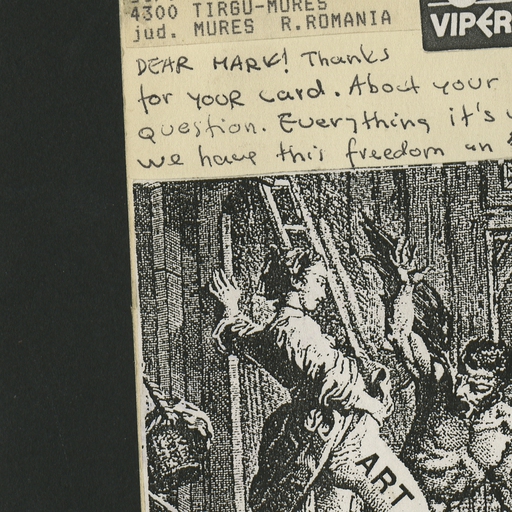 4300 TIRGU-MURES
jud. MURES R.ROMANIA
VIPER
DEAR MARK! Thanks
for your card. About your
question. Everything it's
we have this freedom an
ART